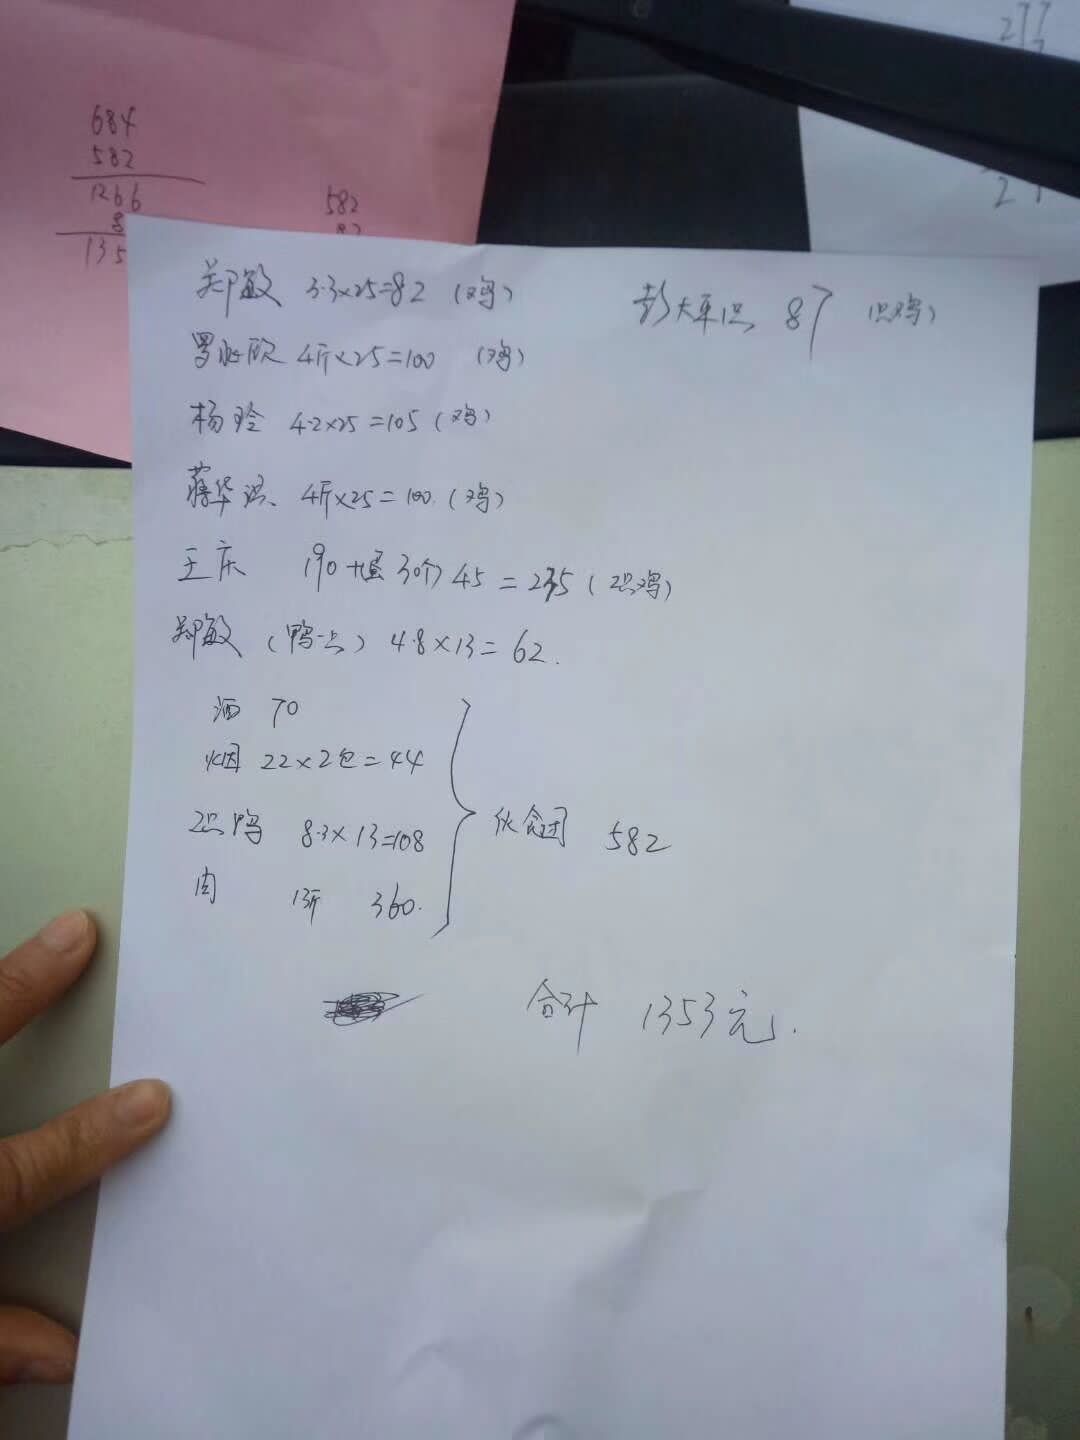 684
582
1266
8
135
582
277
2
郑敏 3.3×25=82 (鸡)
彭大军1只 87 (1只鸡)
罗 欧 4斤×25=100 (鸡)
杨玲 4.2×25=105 (鸡)
蒋华 4斤×25=100. (鸡)
王庆 190+蛋30个45=235 (2只鸡)
郑敏 (鸭一只) 4.8×13=62.
酒 70
烟 22×2包=44
2只鸭 8.3×13=108
肉 13斤 360.
伙食团 582
合计 1353元.